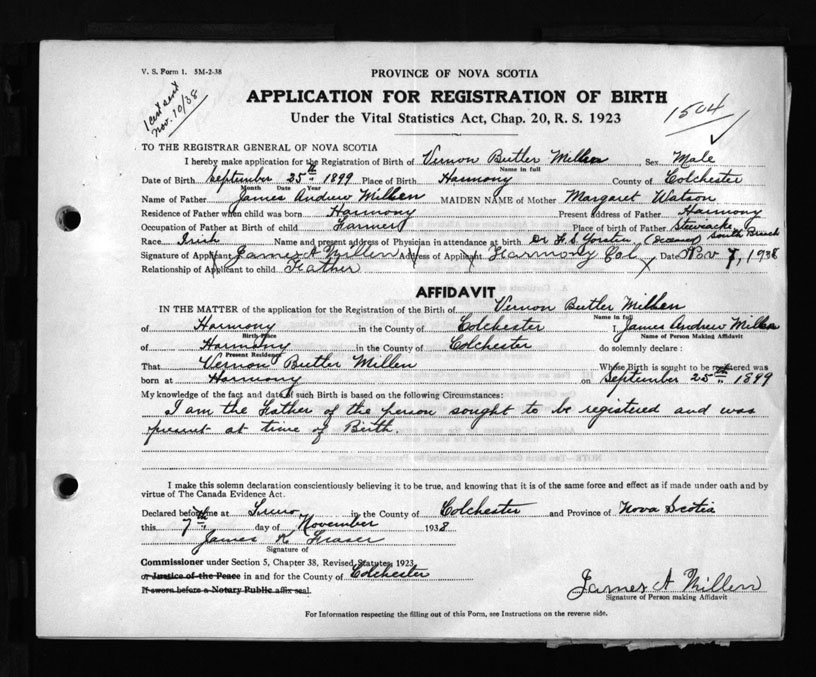 V. S. Form 1. 5M-2-38
1 cert sent
Nov. 10/38
PROVINCE OF NOVA SCOTIA
APPLICATION FOR REGISTRATION OF BIRTH
1504
Under the Vital Statistics Act, Chap. 20, R. S. 1923
TO THE REGISTRAR GENERAL OF NOVA SCOTIA
I hereby make application for the Registration of Birth of Vernon Butler Millen Sex Male
Name in full
Date of Birth September 25th 1899 Place of Birth Harmony County of Colchester
Month Date Year
Name of Father James Andrew Millen MAIDEN NAME of Mother Margaret Watson
Residence of Father when child was born Harmony Present Address of Father Harmony
Occupation of Father at Birth of child Farmer Place of birth of Father Stewiacke South Branch
Race Irish Name and present address of Physician in attendance at birth Dr F. S. Yorston (Deceased)
Signature of Applicant James A Millen Address of Applicant Harmony Col Date Nov 7, 1938
Relationship of Applicant to child Father
AFFIDAVIT
IN THE MATTER of the application for the Registration of the Birth of Vernon Butler Millen
Name in full
of Harmony in the County of Colchester I, James Andrew Millen
Birth Place Name of Person Making Affidavit
of Harmony in the County of Colchester do solemnly declare:
Present Residence
That Vernon Butler Millen Whose Birth is sought to be registered was
born at Harmony on September 25th 1899
My knowledge of the fact and date of such Birth is based on the following Circumstances:
I am the Father of the person sought to be registered and was
present at time of Birth.
I make this solemn declaration conscientiously believing it to be true, and knowing that it is of the same force and effect as if made under oath and by
virtue of The Canada Evidence Act.
Declared before me at Truro in the County of Colchester and Province of Nova Scotia
this 7th day of November 1938
James K Fraser
Signature of
Commissioner under Section 5, Chapter 38, Revised Statutes 1923
or Justice of the Peace in and for the County of Colchester
If sworn before a Notary Public affix seal.
James A Millen
Signature of Person making Affidavit
For Information respecting the filling out of this Form, see Instructions on the reverse side.